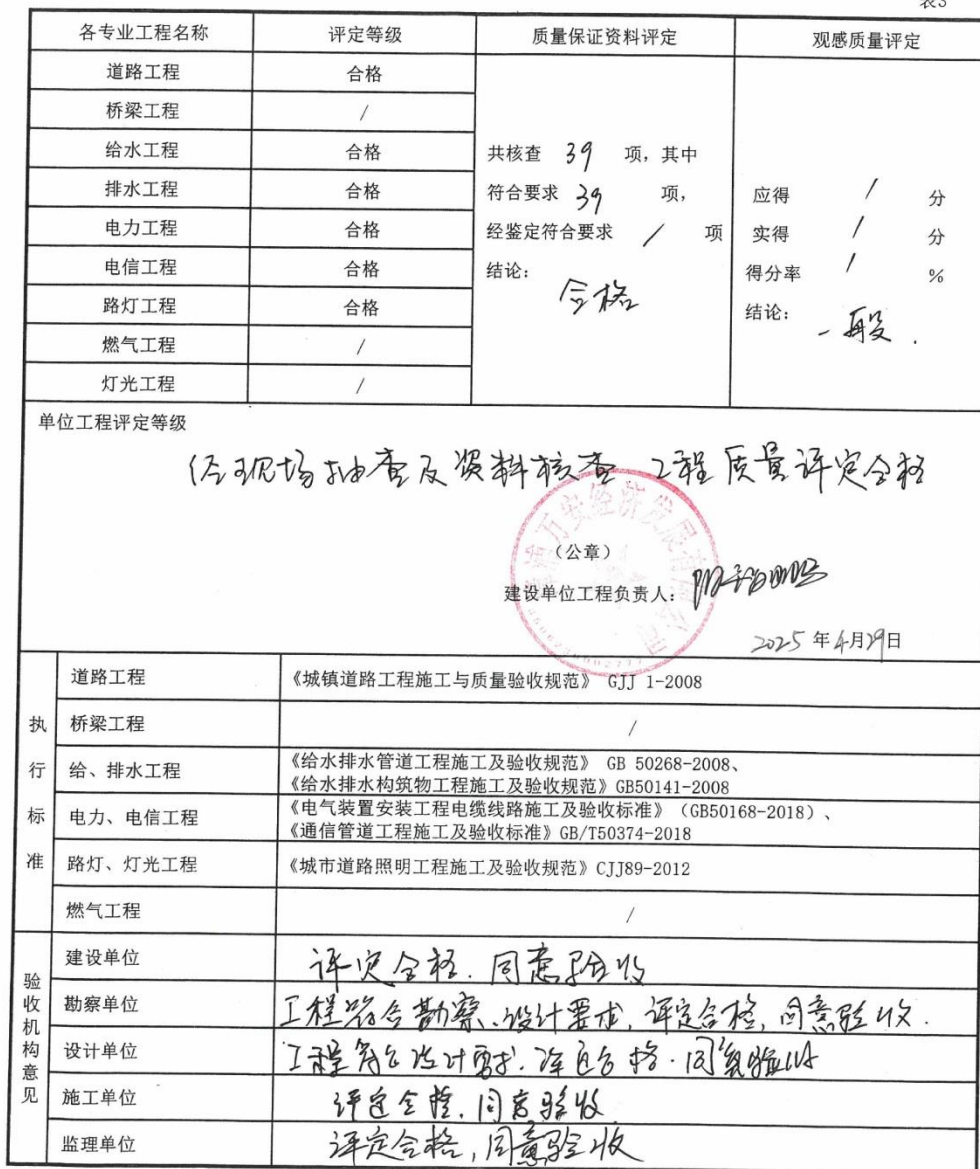 表3
各专业工程名称 评定等级 质量保证资料评定 观感质量评定
道路工程 合格
桥梁工程 /
给水工程 合格
排水工程 合格
电力工程 合格
电信工程 合格
路灯工程 合格
燃气工程 /
灯光工程 /
共核查 39 项，其中
符合要求 39 项，
经鉴定符合要求 / 项
结论：
合格
应得 / 分
实得 / 分
得分率 / %
结论：
一般.
单位工程评定等级
经现场抽查及资料核查 工程质量评定合格
（公章）
建设单位工程负责人：
2025 年4月29日
执行标准
道路工程 《城镇道路工程施工与质量验收规范》 GJJ 1-2008
桥梁工程 /
给、排水工程 《给水排水管道工程施工及验收规范》 GB 50268-2008、
《给水排水构筑物工程施工及验收规范》GB50141-2008
电力、电信工程 《电气装置安装工程电缆线路施工及验收标准》（GB50168-2018）、
《通信管道工程施工及验收标准》GB/T50374-2018
路灯、灯光工程 《城市道路照明工程施工及验收规范》CJJ89-2012
燃气工程 /
验收机构意见
建设单位 评定合格.同意验收
勘察单位 工程符合勘察、设计要求,评定合格,同意验收.
设计单位 工程符合设计要求.评定合格.同意验收
施工单位 评定合格,同意验收
监理单位 评定合格,同意验收